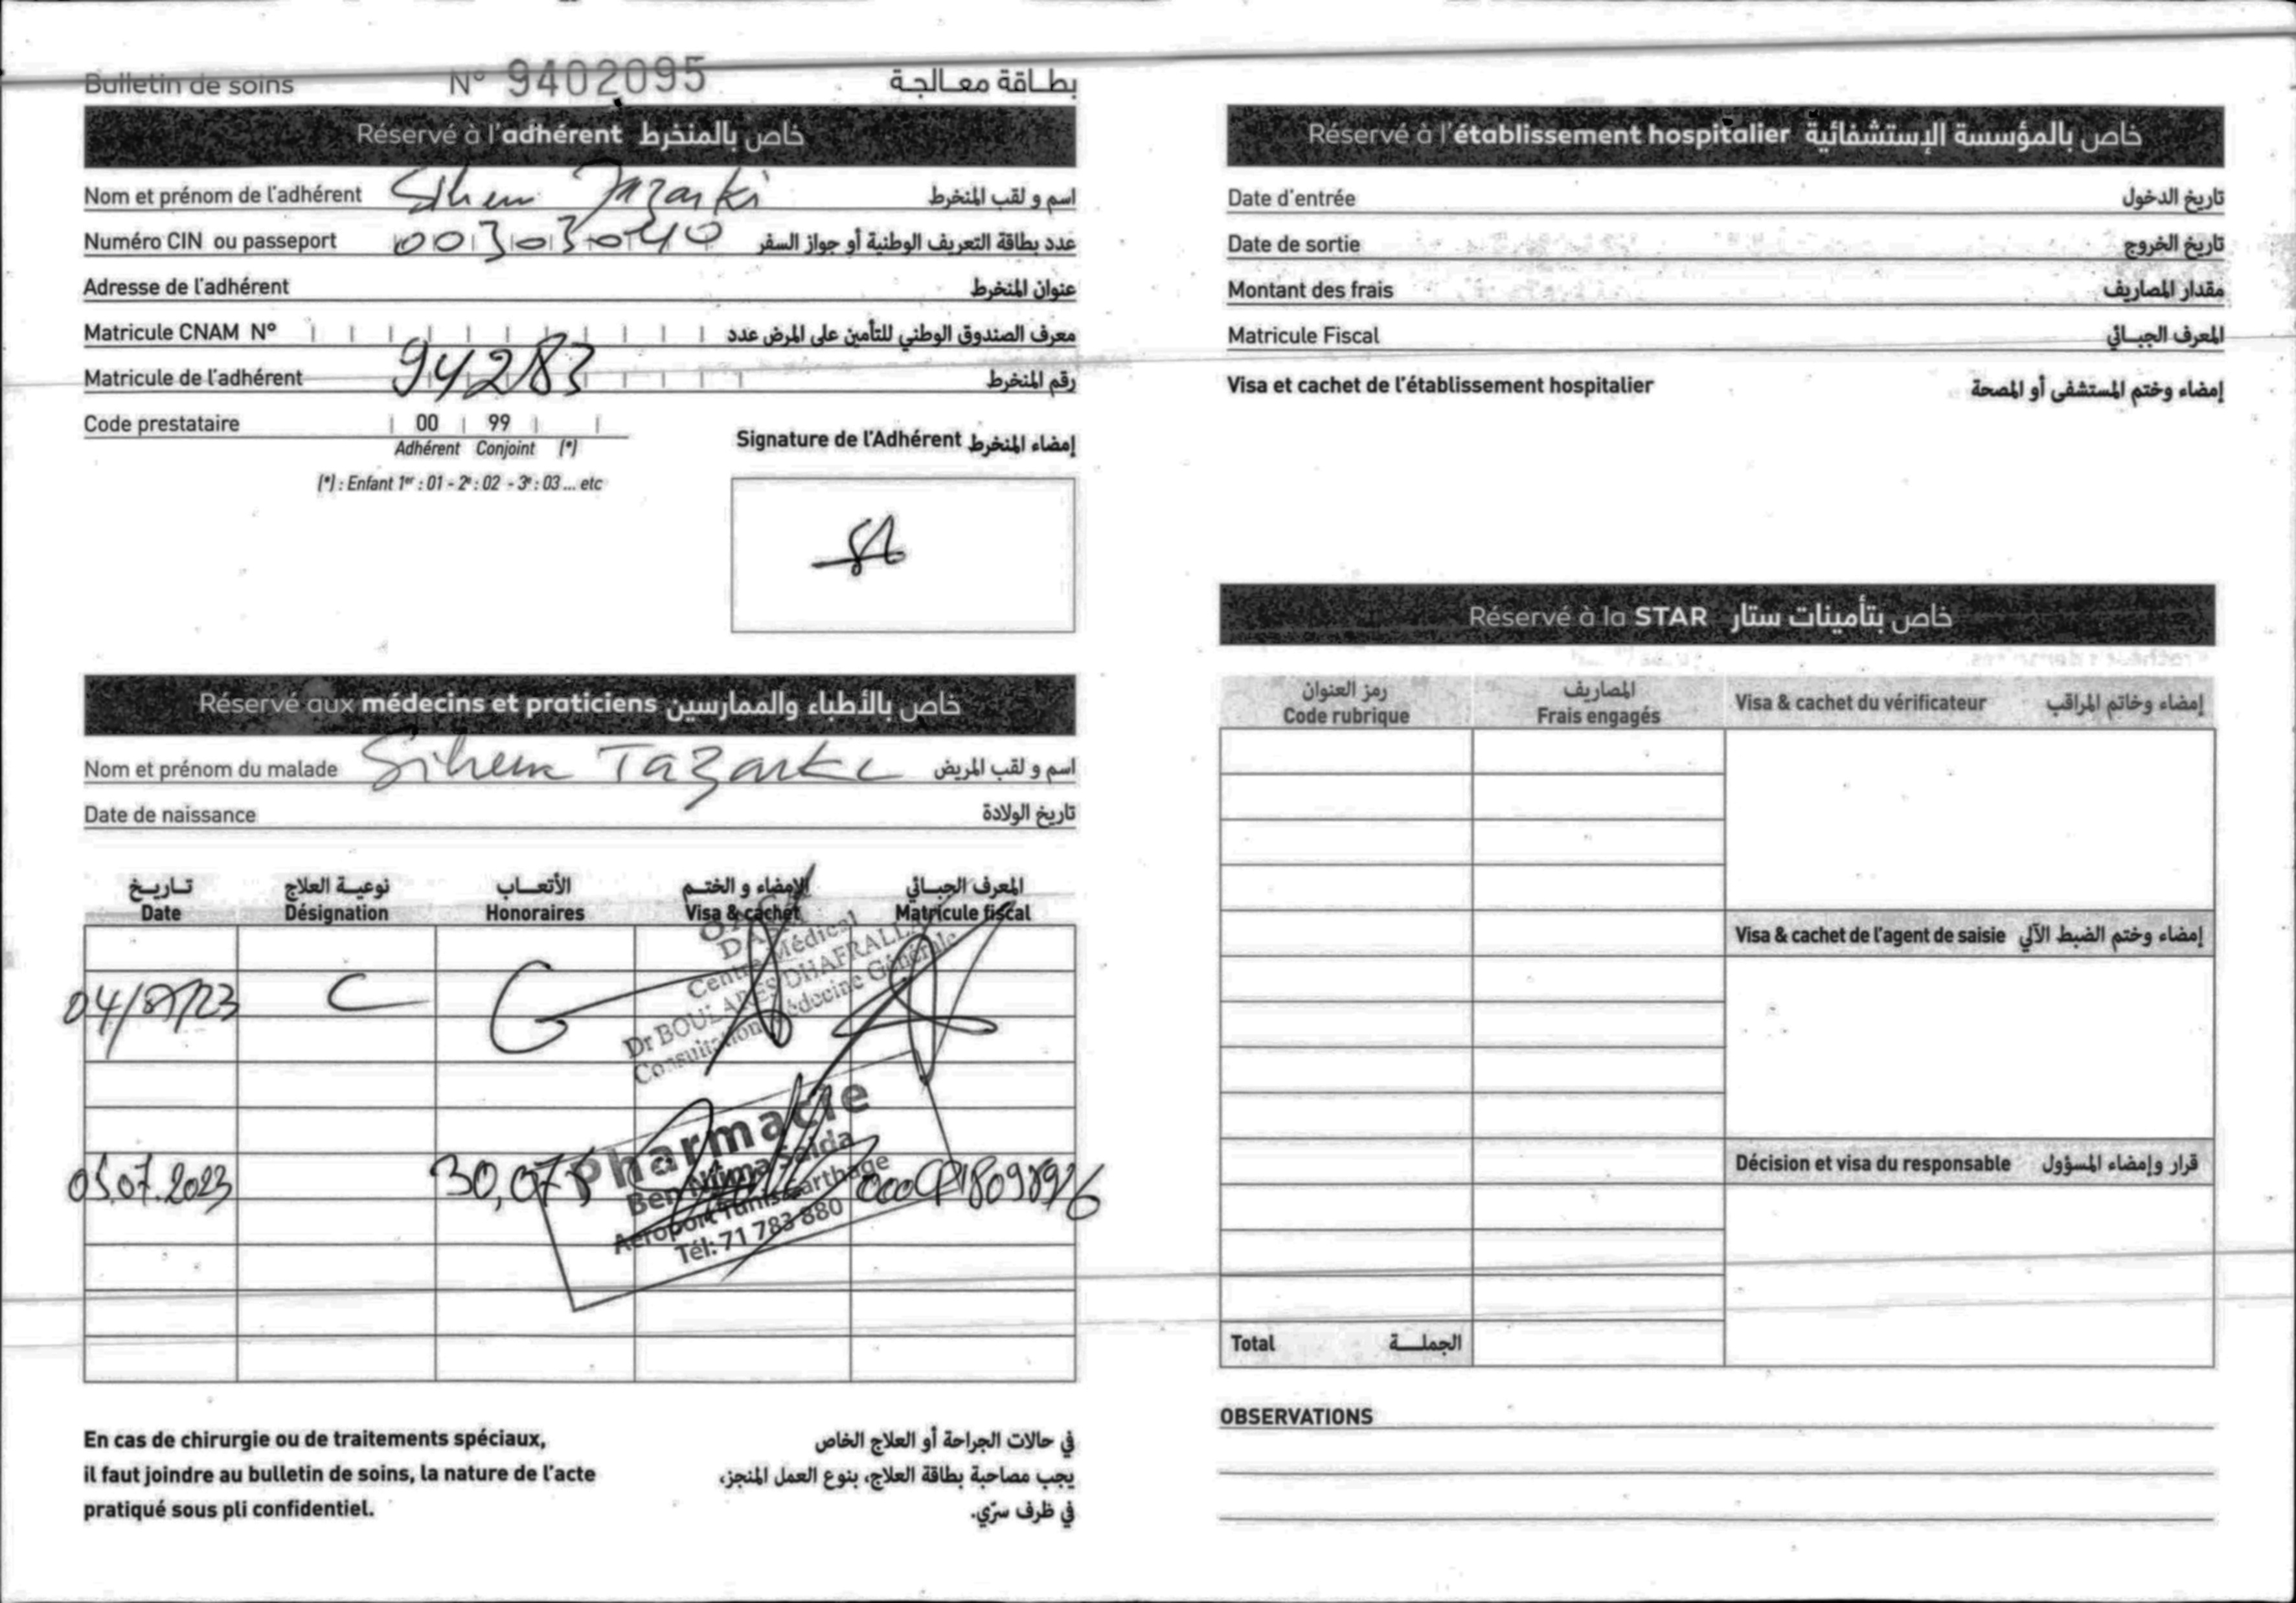 Bulletin de soins N° 9402095 بطاقة معالجة
Réservé à l'adhérent خاص بالمنخرط
Nom et prénom de l'adhérent Sihem Tazarki اسم و لقب المنخرط
Numéro CIN ou passeport 00303040 عدد بطاقة التعريف الوطنية أو جواز السفر
Adresse de l'adhérent عنوان المنخرط
Matricule CNAM N° معرف الصندوق الوطني للتأمين على المرض عدد
Matricule de l'adhérent 94283 رقم المنخرط
Code prestataire 00 99
Adhérent Conjoint (*)
(*) : Enfant 1er : 01 - 2e : 02 - 3e : 03 ... etc
Signature de l'Adhérent إمضاء المنخرط
Réservé aux médecins et praticiens خاص بالأطباء والممارسين
Nom et prénom du malade Sihem Tazarki اسم و لقب المريض
Date de naissance تاريخ الولادة
تاريخ نوعية العلاج الأتعاب الإمضاء و الختم المعرف الجبائي
Date Désignation Honoraires Visa & cachet Matricule fiscal
Centre Médical
Dr BOULARES DHAFRALLAH
Consultation Médecine Générale
04/07/23 C G
Pharmacie
Ben Njima Saida
Aéroport Tunis Carthage
Tél: 71 783 880
05.07.2023 30,075
En cas de chirurgie ou de traitements spéciaux,
il faut joindre au bulletin de soins, la nature de l'acte
pratiqué sous pli confidentiel.
في حالات الجراحة أو العلاج الخاص
يجب مصاحبة بطاقة العلاج، بنوع العمل المنجز،
في ظرف سرّي.
Réservé à l'établissement hospitalier خاص بالمؤسسة الإستشفائية
Date d'entrée تاريخ الدخول
Date de sortie تاريخ الخروج
Montant des frais مقدار المصاريف
Matricule Fiscal المعرف الجبائي
Visa et cachet de l'établissement hospitalier إمضاء وختم المستشفى أو المصحة
Réservé à la STAR خاص بتأمينات ستار
رمز العنوان المصاريف
Code rubrique Frais engagés
Visa & cachet du vérificateur إمضاء وخاتم المراقب
Visa & cachet de l'agent de saisie إمضاء وختم الضبط الآلي
Décision et visa du responsable قرار وإمضاء المسؤول
Total الجملة
OBSERVATIONS